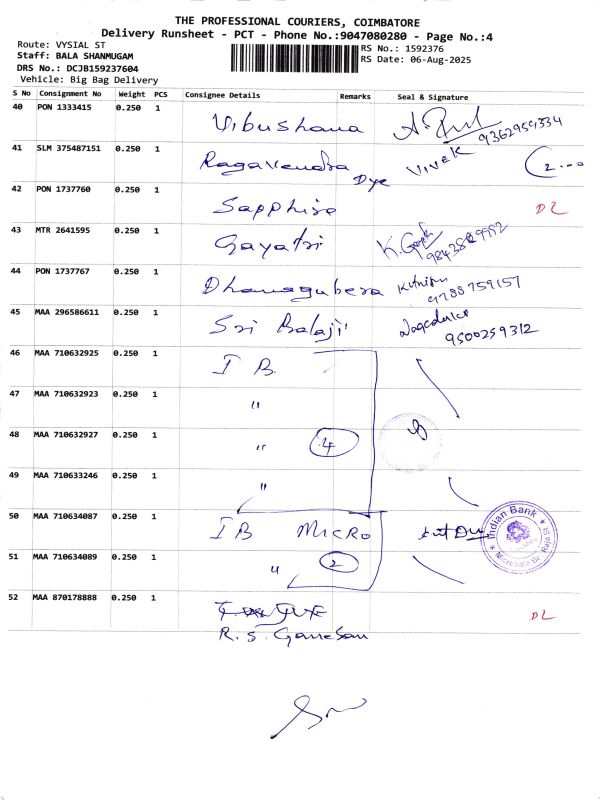 THE PROFESSIONAL COURIERS, COIMBATORE
Delivery Runsheet - PCT - Phone No.:9047080280 - Page No.:4
Route: VYSIAL ST
Staff: BALA SHANMUGAM
DRS No.: DCJB159237604
Vehicle: Big Bag Delivery
RS No.: 1592376
RS Date: 06-Aug-2025
S No Consignment No Weight PCS Consignee Details Remarks Seal & Signature
40 PON 1333415 0.250 1 Vibushana 9362959334
41 SLM 375487151 0.250 1 Ragavendra Dye VIVEK
42 PON 1737760 0.250 1 Sapphire DL
43 MTR 2641595 0.250 1 Gayatri
44 PON 1737767 0.250 1 Dhanagubera
45 MAA 296586611 0.250 1 Sri Balaji 9500259312
46 MAA 710632925 0.250 1 I B
47 MAA 710632923 0.250 1 "
48 MAA 710632927 0.250 1 " 4
49 MAA 710633246 0.250 1 "
50 MAA 710634087 0.250 1 I B MICRO Indian Bank
51 MAA 710634089 0.250 1 " 2
52 MAA 870178888 0.250 1 DL
R. S. Ganesan